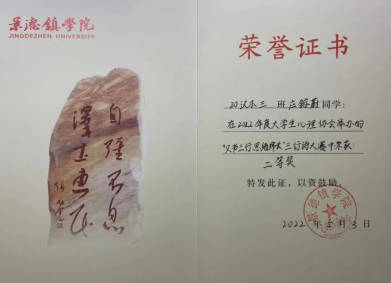 景德镇学院
JINGDEZHEN UNIVERSITY
自强不息
泽土惠民
荣誉证书
班 同学:
在2022年度大学生心理协会举办的
三行诗大赛中荣获:
二等奖
特发此证,以资鼓励。
景德镇学院
2022年5月3日